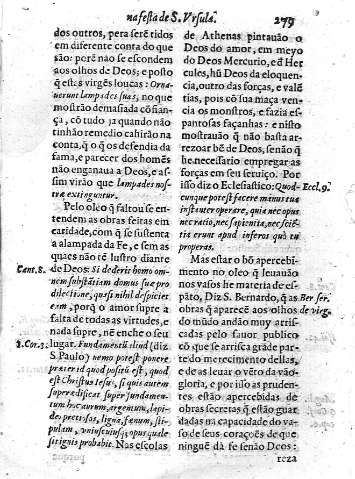 na festa de S. Vrsula. 279
dos outros, pera serẽ tidos
em diferente conta do que
são: perẽ não se escondem
aos olhos de Deos; e posto
q̃ estas virgẽs loucas: Orna
uerunt lampades suas, no que
mostrão demasiada cõfian
ça, cõ tudo ja quando não
tinhão remedio cahirão na
conta, q̃ o q̃ os defendia da
fama, e parecer dos homẽs
não enganaua a Deos, e as
sim virão que lampades nos-
træ extinguntur.
Pelo oleo q̃ faltou se en-
tendem as obras feitas em
caridade, com q̃ se sustenta
a alampada da Fe, e sem as
quaes não tẽ lustro diante
Cant. 8.
de Deos: Si dederit homo om-
nem substãtiam domus suæ pro
dilectione, quasi nihil despiciet
eam, porq̃ o amor supre a
falta de todas as virtudes, e
nada supre, nẽ enche o seu
2. Cor. 3.
lugar. Fundamentũ aliud (diz
S. Paulo) nemo potest ponere
præter id quod positũ est, quod
est Christus Iesus, si quis autem
superædificat super fundamen-
tum hoc aurum, argentum, lapi-
des pretiosos, ligna, fænum, sti-
pulam, vniuscuiusq; opus quale
sit ignis probabit. Nas escolas
de Athenas pintauão o
Deos do amor, em meyo
do Deos Mercurio, e d'Her
cules, hũ Deos da eloquen
cia, outro das forças, e valẽ
tias, pois cõ sua maça ven-
cia os monstros, e fazia es-
pantosas façanhas: e nisto
mostrauão q̃ não basta ar-
rezoar bẽ de Deos, senão q̃
he necessario empregar as
forças em seu seruiço. Por
isso diz o Eclesiastico: Quod-
Eccl. 9.
cunque potest facere manus tua
instanter operare, quia nec opus
nec ratio, nec sapientia, nec sciẽ-
tia erunt apud inferos quò tu
properas.
Mas estar o bõ apercebi-
mento no oleo q̃ leuauão
nos vasos he materia de es-
pãto, Diz S. Bernardo, q̃ as
Ber. ser.
obras q̃ aparecẽ aos olhos
de virg.
do mũdo andão muy arris-
cadas pelo fauor publico
que se arrisca grãde par-
te do merecimento dellas,
e de as leuar o vẽto da vãa-
gloria, e por isso as pruden-
tes estão apercebidas de
obras secretas q̃ estão guar
dadas na capacidade do va-
so de seus corações de que
ninguẽ dà fe senão Deos:
reza